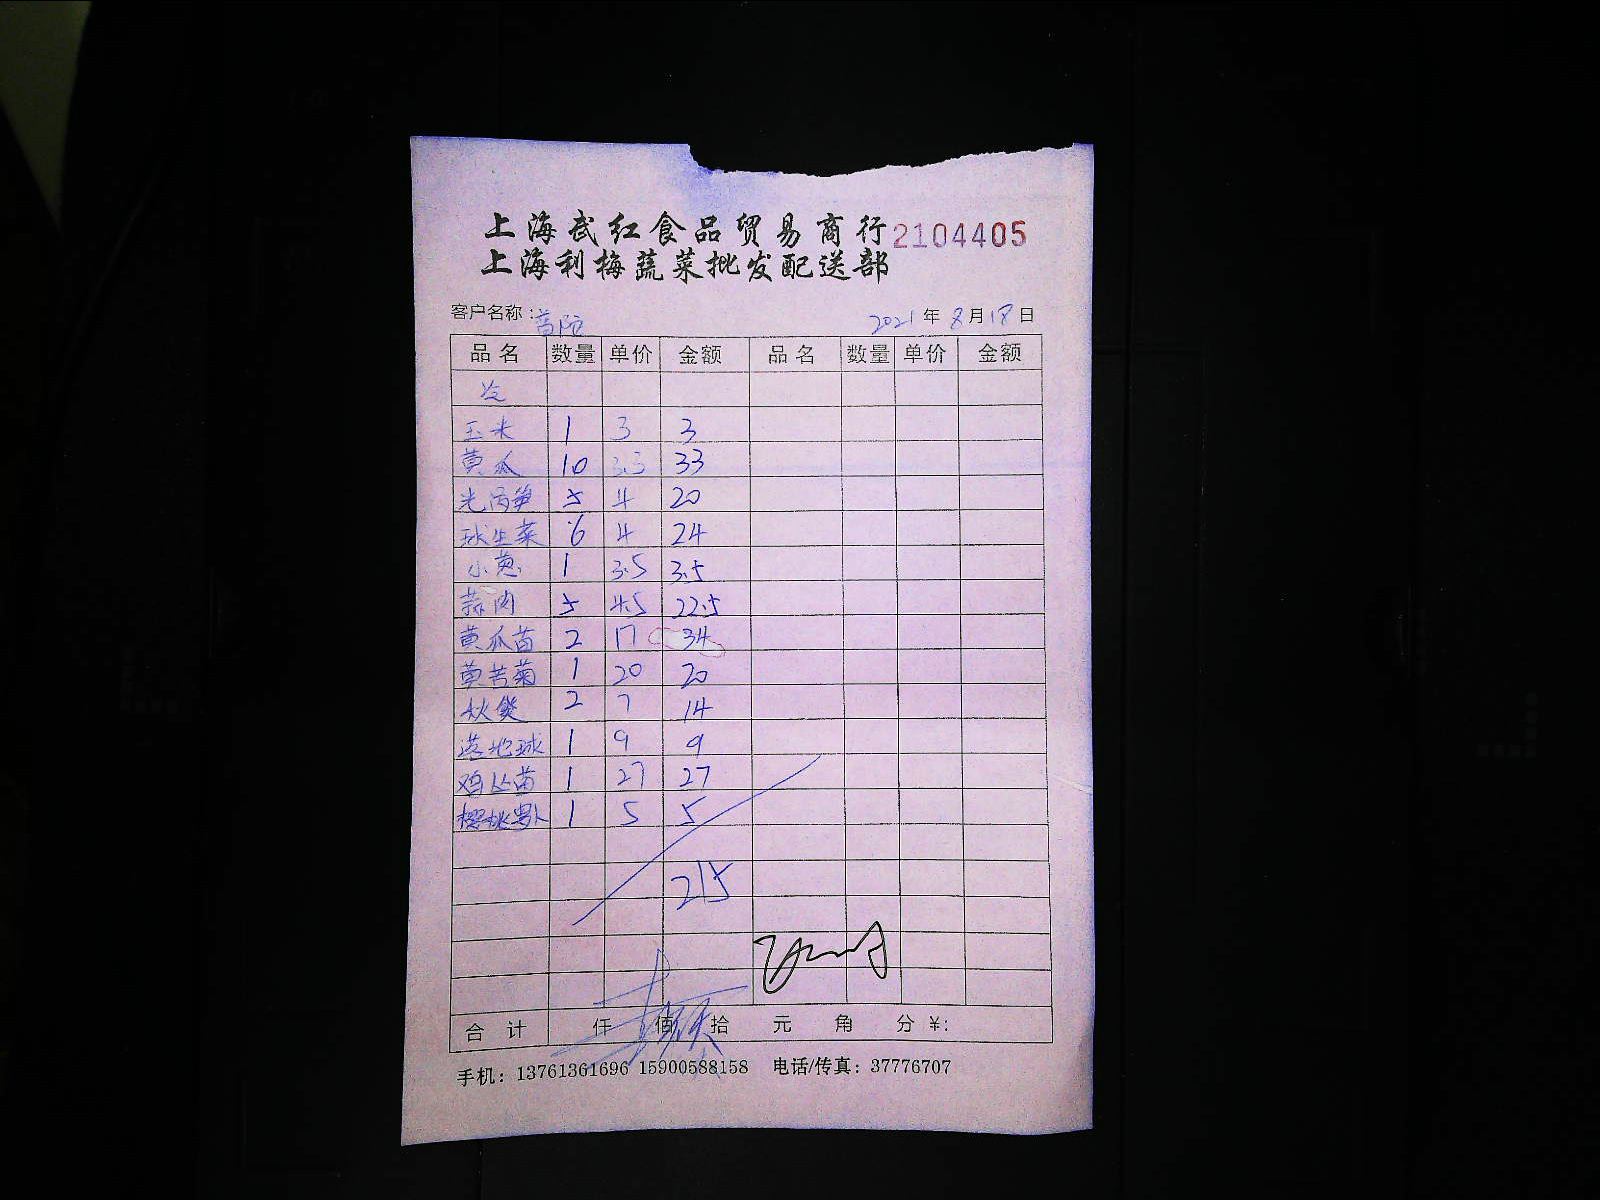 上海武红食品贸易商行 2104405
上海利梅蔬菜批发配送部
客户名称：普陀 2021年8月18日
品名 数量 单价 金额 品名 数量 单价 金额
冷
玉米 1 3 3
黄瓜 10 3.3 33
光莴笋 5 4 20
球生菜 6 4 24
小葱 1 3.5 3.5
蒜肉 5 4.5 22.5
黄瓜苗 2 17 34
黄苦菊 1 20 20
秋葵 2 7 14
1 9 9
1 27 27
樱桃萝卜 1 5 5
215
合计 仟 佰 拾 元 角 分 ¥:
手机：13761361696 15900588158 电话/传真：37776707